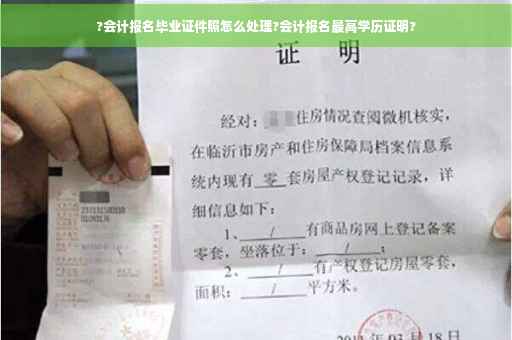 ?会计报名毕业证件照怎么处理?会计报名最高学历证明?
证 明
经对: 住房情况查阅微机核实,
在临沂市房产和住房保障局档案信息系
统内现有 零 套房屋产权登记记录,详
细信息如下:
1、 / 有商品房网上登记备案
零套,坐落位于: / ;
2、 / 有产权登记房屋零套,
面积: / 平方米。
03月18日